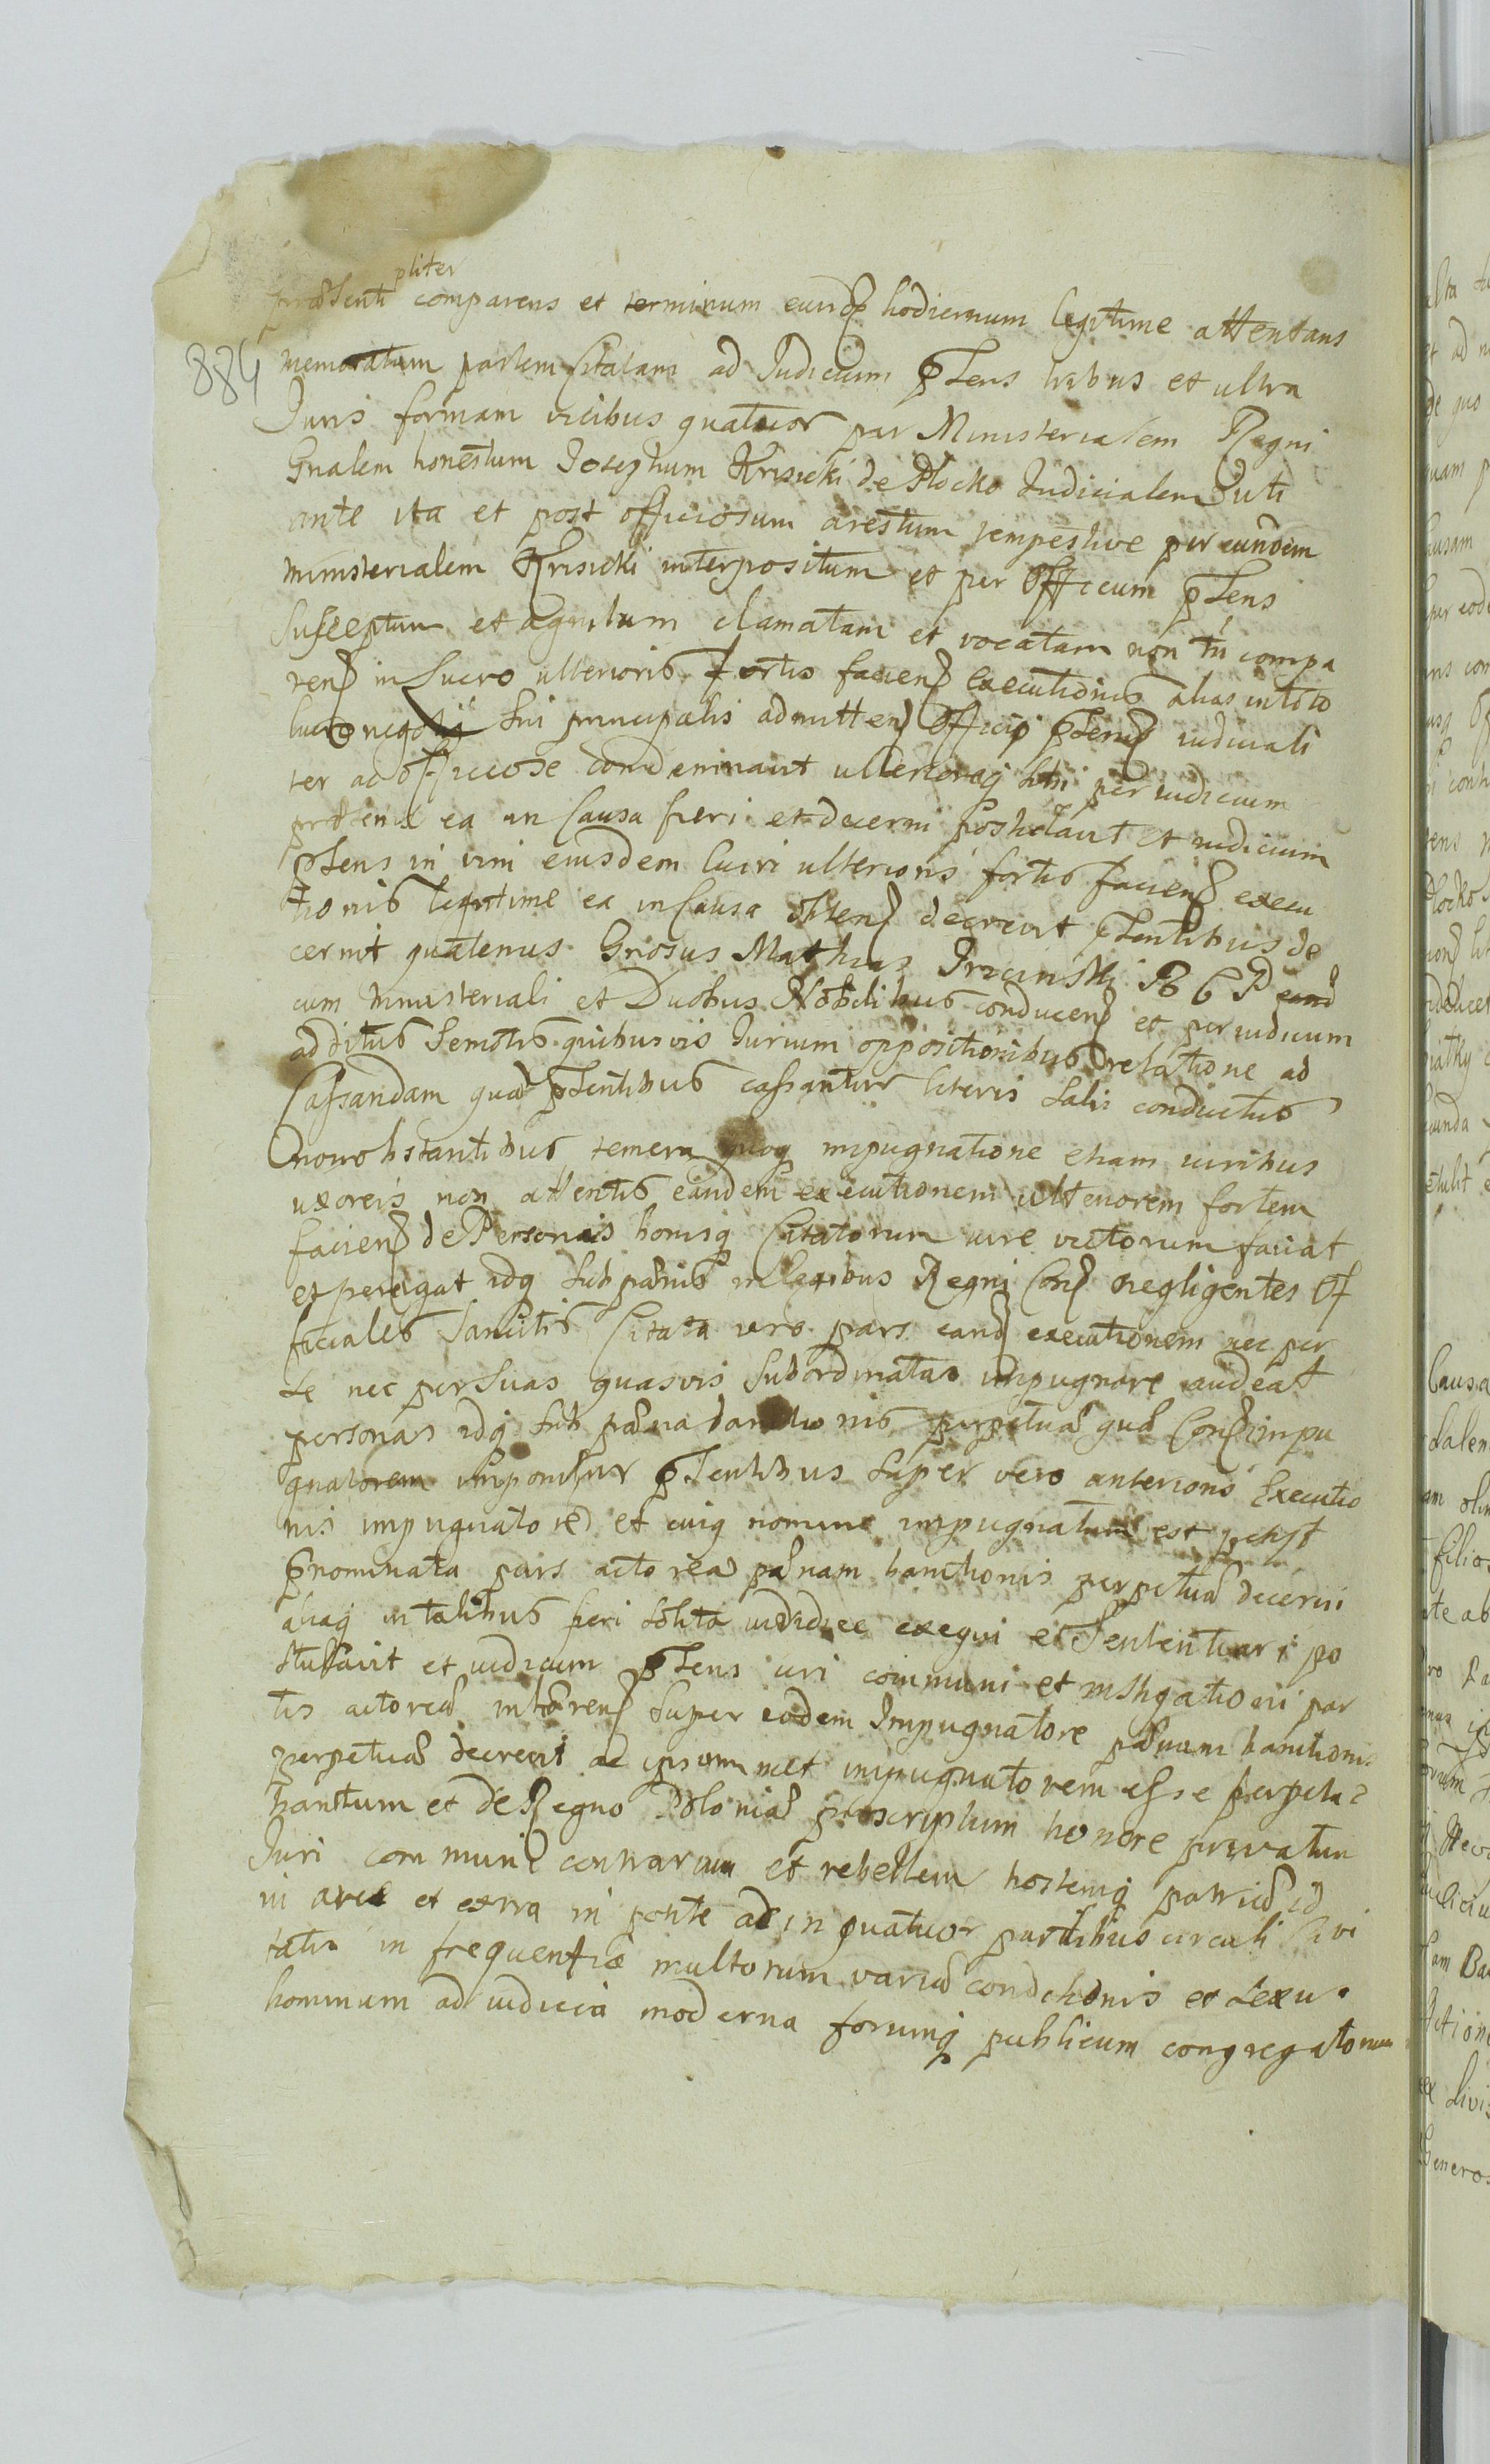 præsenti pliter comparens et terminum eund hodiernum legitime attentans
884 memoratam partem Citatam ad Judicium pńs tribus et ultra
Juris formam vicibus quatuor par Ministerialem Regni
Gnalem honestum Josephum Krisicki de Plocko Judicialem uti
ante ita et post officiosum arestum tempestive per eundem
ministerialem Krisicki interpositum et per Officium pńs
susceptum et agnitum clamatam et vocatam non tn compa
ren in Lucro ulterioris fortis facien executionis alias in toto
lucro negotij sui principalis admitten Officij pntis iudiciali
ter ac officiose condemnavit ulterioraq sibi per iudicium
præsens ea in Causa fieri et decerni postulavit et iudicium
pńs in vim eiusdem lucri ulterioris fortis facien execu
tionis legitime ea in Causa obten decrevit pntibus de
cernit quatenus Gnosus Mathias B C P
cum ministeriali et Duobus Nobilibus conducen et per iudicium
additus semotis quibusvis Jurium oppositionibus relatione ad
Cassandam quæ pntibus cassantur literis Salvi conductus
nonobstantibus temera quoq impugnatione etiam viribus
uxoreis non attentis eandem executionem ulteriorem fortem
facien de Personis bonisq Citatorum iure victorum faciat
et peragat idq sub pænis in legibus Regni Con negligentes Of
ficiales sancitis Citata vero pars eand executionem nec per
se nec per suas quasvis subordinatas impugnare audeat
personas idq sub pæna bannitionis perpetuæ quæ Con impu
gnatorem imponitur pntibus super vero anterioris Executio
nis impugnatore et cuiq nomine impugnatum est
pnominata pars actorea pænam bannitionis perpetuæ decerni
aliaq in talibus fieri solita iudicise exequi et Sententiari po
stulavit et iudicium pńs iuri communi et instigationi par
tis actoreæ inhæren super eodem Impugnatore pænam bannitionis
perpetuæ decrevit ac ipsummet impugnatorem esse perpetu
banitum et de Regno Poloniæ proscriptum honore privatum
Juri communi contrarium et rebellem hostemq patriæ id
in arce et extra in ponte ac in quatuor partibus circuli Civi
tatis in frequentia multorum variæ conditionis et sexus
hominum ad iudicia moderna forumq publicum congregatorum